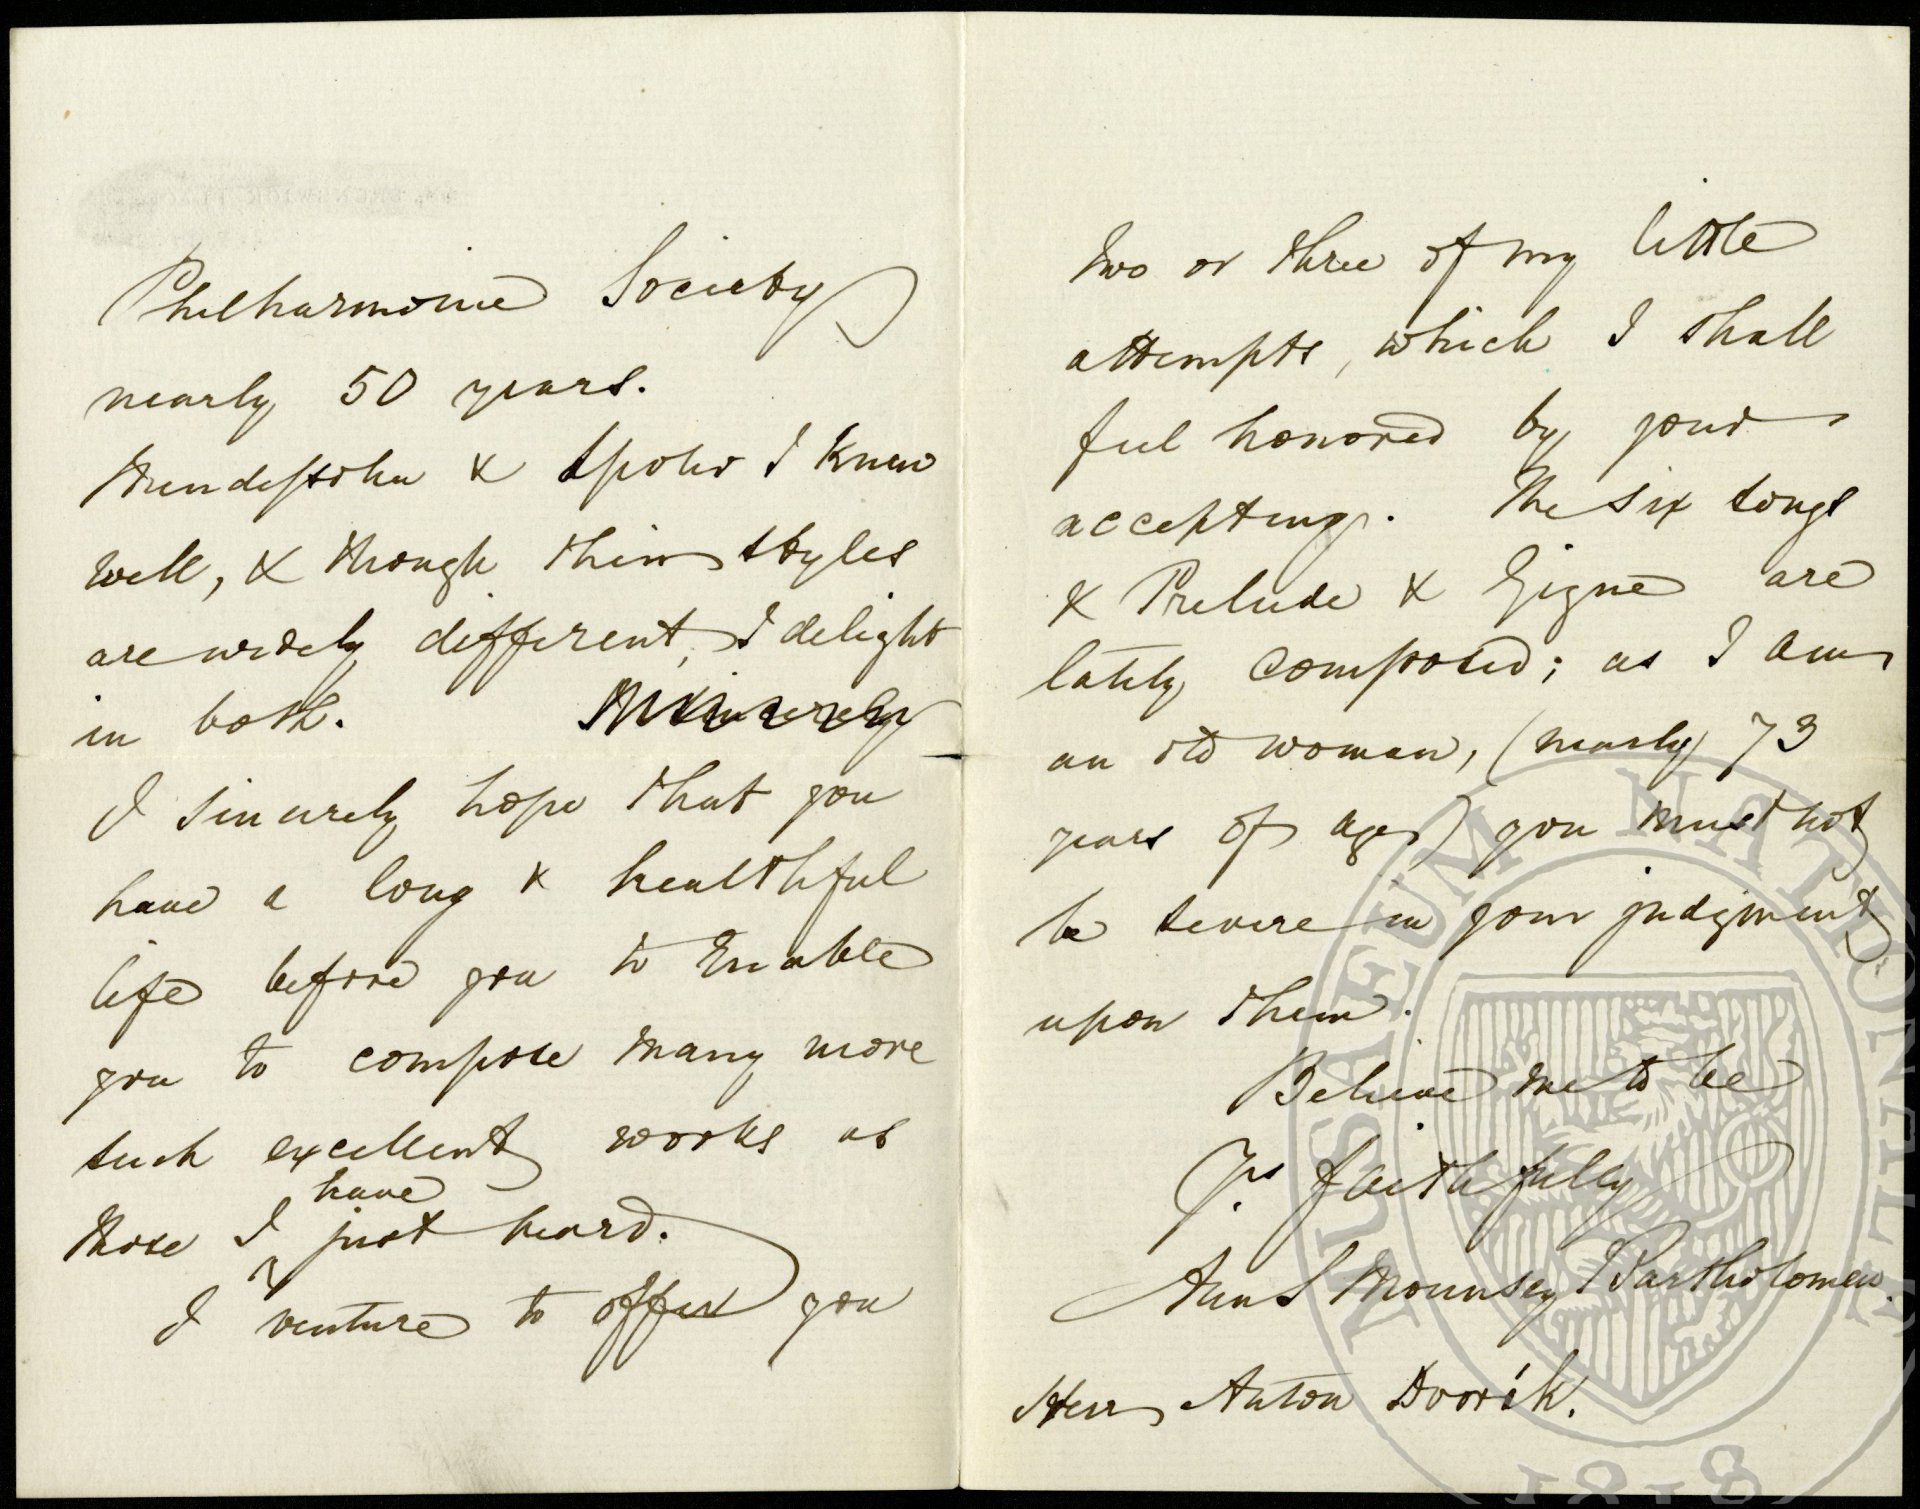 Philharmonic Society
nearly 50 years.
Mendelssohn & Spohr I knew
well, & though their styles
are widely different, I delight
in both.
I sincerely hope that you
have a long & healthful
life before you to enable
you to compose many more
such excellent works as
have
those I just heard.
I venture to offer you
two or three of my little
attempts, which I shall
feel honored by your
accepting. The six songs
& Prelude & Gigue are
lately composed; as I am
an old woman, (nearly 73
years of age) you must not
be severe in your judgment
upon them.
Believe me to be
Yrs faithfully
Ann S Mounsey Bartholomew.
Herr Anton Dvořák.
MUSAEUM NATIONALE
1818